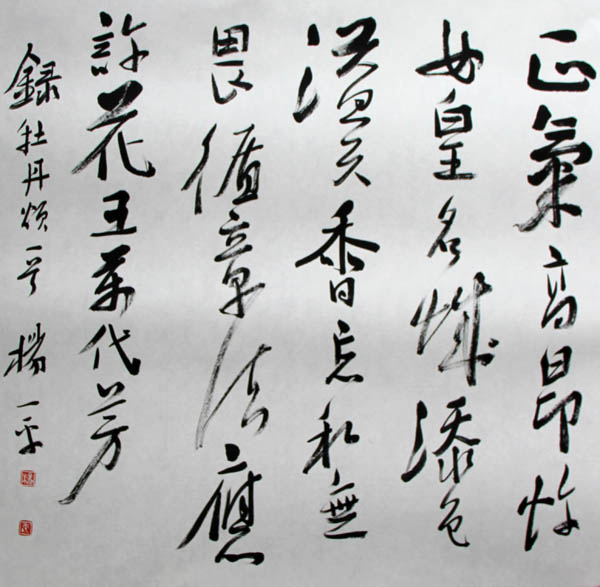 正氣高昂忤
女皇名城添色
溢天香忘私無
畏循章法應
許花王萬代芳
録牡丹頌一首 楊一平